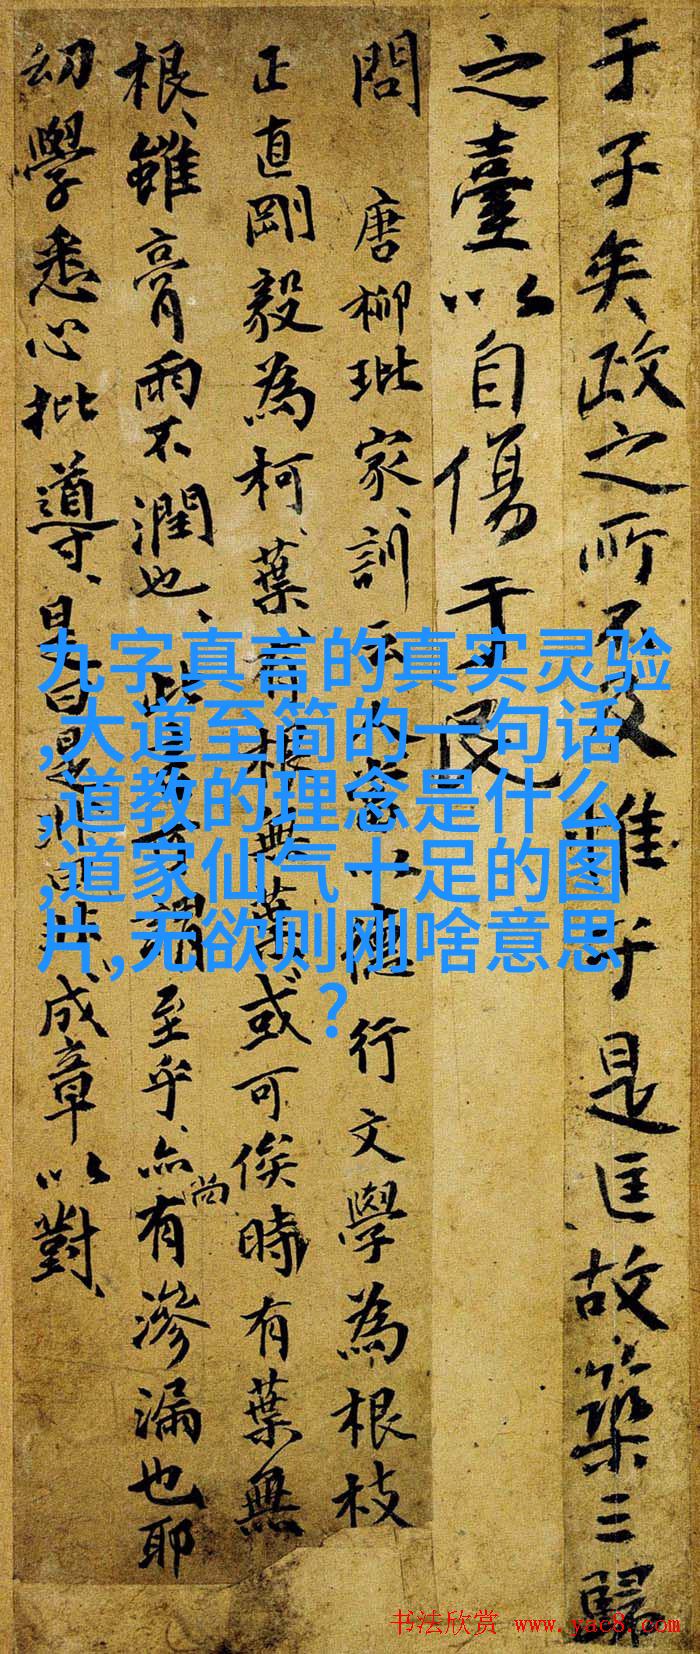 于子矣政之所不及惟于是匡故築三歸
之臺以自傷于民
問 唐柳玭家訓云以德行文學為根枝
正直剛毅為柯葉有根無葉或可俟時有葉無
根雖膏雨不潤也此至乎亦尚有滲漏也耶
幼學悉心批導是曰是非曰非成章以對
九字真言的真实灵验
,大道至简的一句话
,道教的理念是什么
,道家仙气十足的图
片,无欲则刚啥意思
?
书法欣赏 www.yac8.com